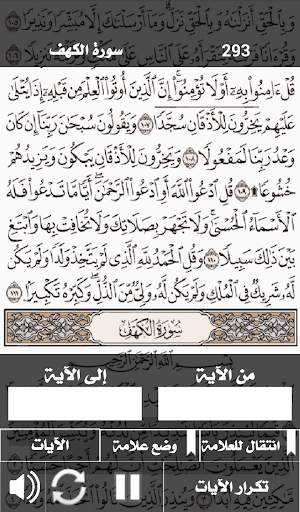 وَبِالْحَقِّ أَنزَلْنَاهُ وَبِالْحَقِّ نَزَلَ وَمَا أَرْسَلْنَاكَ إِلَّا مُبَشِّرًا وَنَذِيرًا ١٠٥
293 سورة الكهف
قُلْ ءَامِنُوا۟ بِهِۦٓ أَوْ لَا تُؤْمِنُوٓا۟ ۚ إِنَّ ٱلَّذِينَ أُوتُوا۟ ٱلْعِلْمَ مِن قَبْلِهِۦٓ إِذَا يُتْلَىٰ
عَلَيْهِمْ يَخِرُّونَ لِلْأَذْقَانِ سُجَّدًا ١٠٧ وَيَقُولُونَ سُبْحَٰنَ رَبِّنَآ إِن كَانَ
وَعْدُ رَبِّنَا لَمَفْعُولًا ١٠٨ وَيَخِرُّونَ لِلْأَذْقَانِ يَبْكُونَ وَيَزِيدُهُمْ
خُشُوعًا ۩ ١٠٩ قُلِ ٱدْعُوا۟ ٱللَّهَ أَوِ ٱدْعُوا۟ ٱلرَّحْمَٰنَ ۖ أَيًّا مَّا تَدْعُوا۟ فَلَهُ
ٱلْأَسْمَآءُ ٱلْحُسْنَىٰ ۚ وَلَا تَجْهَرْ بِصَلَاتِكَ وَلَا تُخَافِتْ بِهَا وَٱبْتَغِ
بَيْنَ ذَٰلِكَ سَبِيلًا ١١٠ وَقُلِ ٱلْحَمْدُ لِلَّهِ ٱلَّذِى لَمْ يَتَّخِذْ وَلَدًا وَلَمْ يَكُن
لَّهُۥ شَرِيكٌ فِى ٱلْمُلْكِ وَلَمْ يَكُن لَّهُۥ وَلِىٌّ مِّنَ ٱلذُّلِّ ۖ وَكَبِّرْهُ تَكْبِيرًۢا ١١١
سُورَةُ الكَهْفِ
بِسْمِ ٱللَّهِ ٱلرَّحْمَٰنِ ٱلرَّحِيمِ
من الآية
إلى الآية
انتقال للعلامة
وضع علامة
الآيات
تكرار الآيات